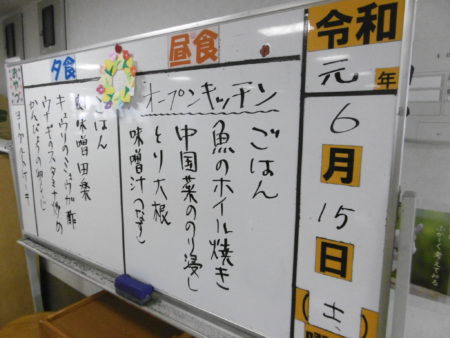 令和
元年
6月
15日
(土)
昼食
オープンキッチン
ごはん
魚のホイル焼き
中国菜ののり浸し
とり大根
味噌汁(つなぎ)
夕食
ごはん
味噌田楽
キュウリのミョウガ酢
ウナギのスタミナ炒め
かんぴょうの卵とじ
おやつ
ヨーグルトケーキ
ふかく考えてみる